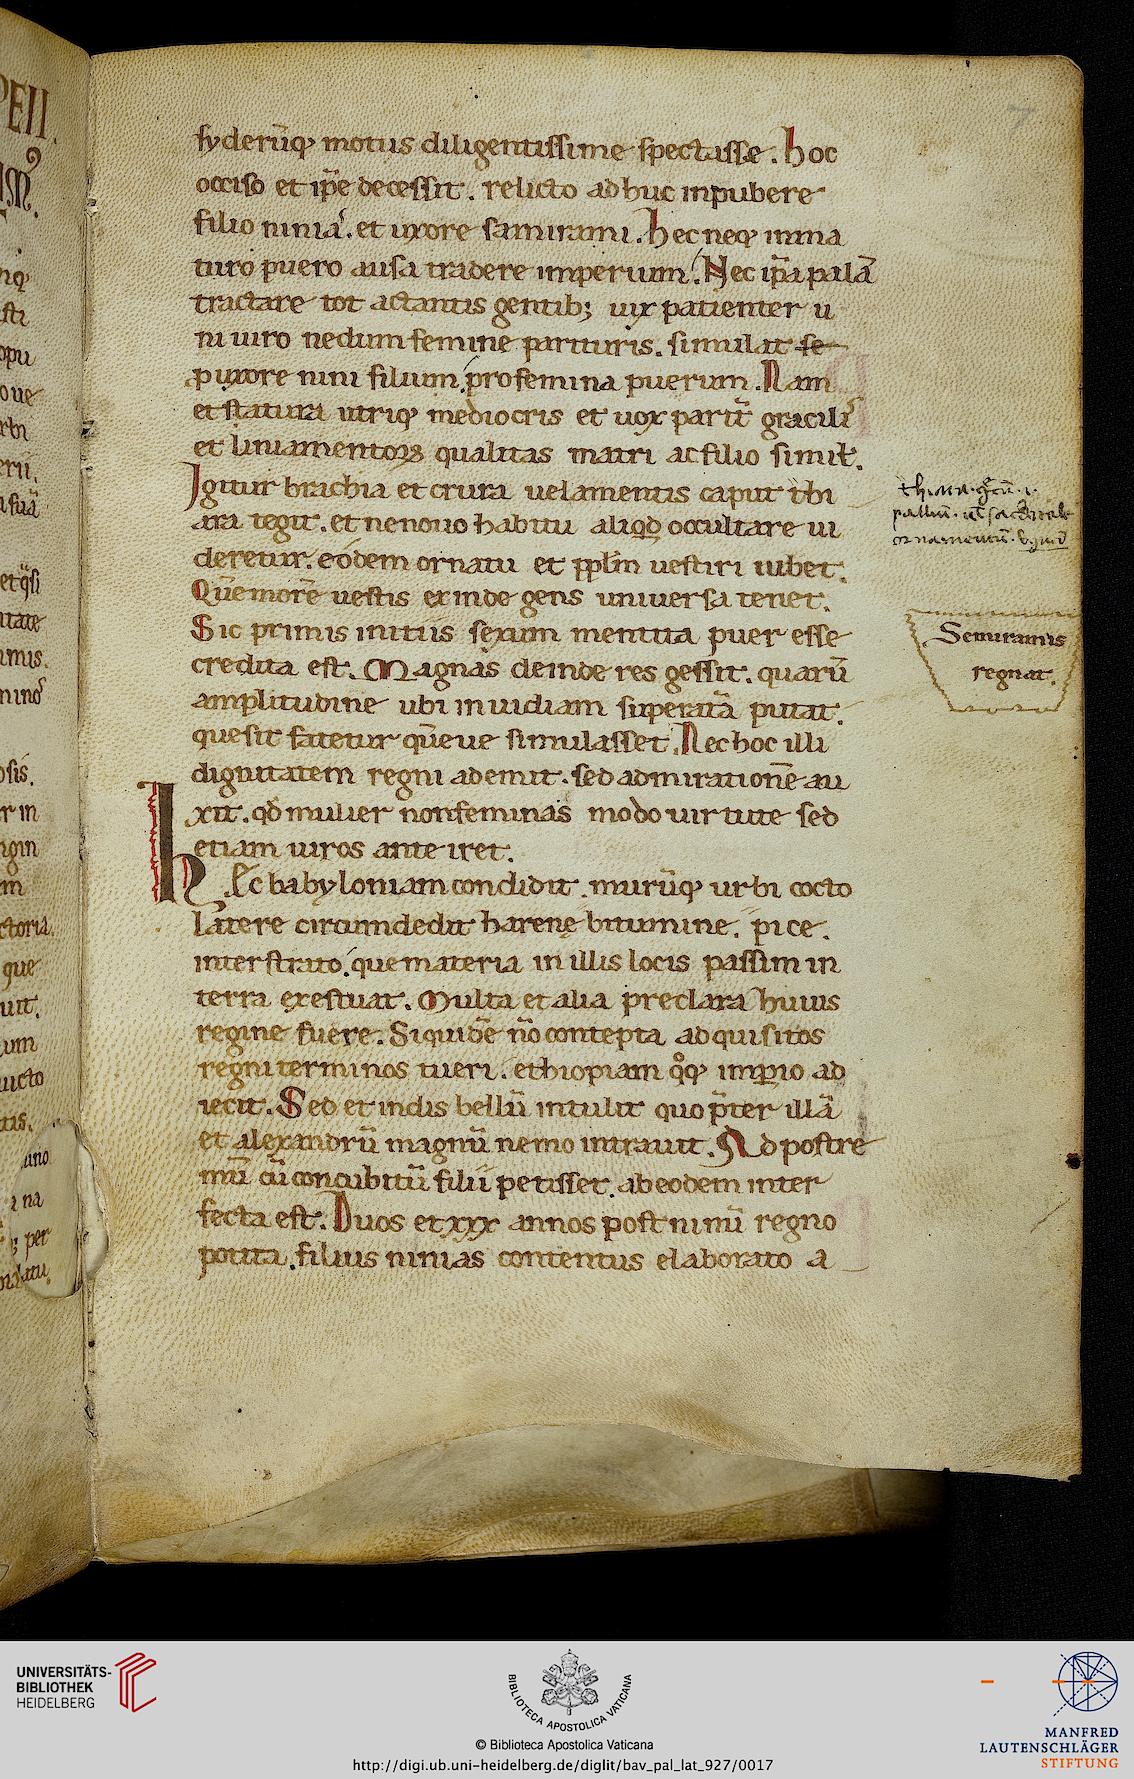 syderūq; motus diligentissime spectasse. hoc
occiso et ip̄e decessit. relicto adhuc inpubere
filio ninia. et uxore samirami. hec neq; inma
turo puero ausa tradere imperium. Nec ip̄a palā
tractare tot actantis gentib; uix patienter u
ni uiro nedum femine parituris. simulat se
p uxore nini filium. pro femina puerum. Nam
et statura utriq; mediocris et uox parit̄ gracilis
et liniamentoꝝ qualitas matri ac filio simil̄.
Igitur brachia et crura uelamentis caput thi
ara tegit. et ne nouo habitu aliqd occultare ui
deretur. eodem ornatu et ppl̄m uestiri iubet.
Quē morē uestis exinde gens uniuersa tenet.
Sic primis initiis sexum mentita puer esse
credita est. Magnas deinde res gessit. quarū
amplitudine ubi inuidiam superatā putat.
que sit fatetur quēue simulasset. Nec hoc illi
dignitatem regni ademit. sed admirationē au
xit. qd mulier non feminas modo uirtute sed
etiam uiros anteiret.
hęc babyloniam condidit. murūq; urbi cocto
latere circumdedit harenę bitumine. pice.
interstrato. que materia in illis locis passim in
terra exestuat. Multa et alia preclara huius
regine fuere. Siquidē n̄o contepta adquisitos
regni terminos tueri. ethiopiam qͦq; imp̄io ad
iecit. Sed et indis bellū intulit quo p̄ter illā
et alexandrū magnū nemo intrauit. Ad postre
mū cū concubitū filii petisset. ab eodem inter
fecta est. Duos et xxx annos post ninū regno
potita. filius ninias contentus elaborato a
thiara. grec̄. i.
palliū. ul̄ sacerdotale
ornamentū.
Semiramis
regnat.
7
PEII.
etq̄si
itate
imis.
ninoˢ
osis.
r in
igin
m
ctoria.
que
uit.
um
uicto
tas.
uno
a na
per
UNIVERSITÄTS-
BIBLIOTHEK
HEIDELBERG
BIBLIOTECA APOSTOLICA VATICANA
© Biblioteca Apostolica Vaticana
http://digi.ub.uni-heidelberg.de/diglit/bav_pal_lat_927/0017
MANFRED
LAUTENSCHLÄGER
STIFTUNG